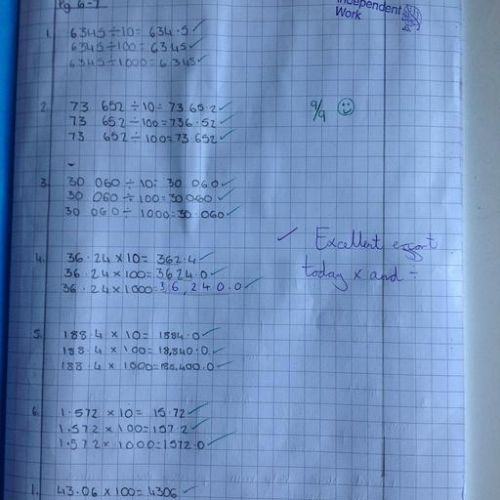 Pg 6-7
Independent
Work
1. 6345÷10= 634.5 ✓
6345÷100= 63.45 ✓
6345÷1000= 6.345 ✓
2. 73 652 ÷ 10= 7365.2 ✓
73 652 ÷ 100= 736.52 ✓
73 652 ÷ 100= 73.652 ✓
9/9 ☺
3. 30 060 ÷ 10= 30060 ✓
30 060 ÷ 100= 30060 ✓
30 060 ÷ 1000= 30.060 ✓
✓ Excellent effort
today x and ÷
4. 36.24 x 10= 362.4 ✓
36.24 x 100= 3624.0 ✓
36.24 x 1000= 36,240.0 ✓
5. 188.4 x 10= 1884.0 ✓
188.4 x 100= 18,840.0 ✓
188.4 x 1000= 188,400.0 ✓
6. 1.572 x 10= 15.72 ✓
1.572 x 100= 157.2 ✓
1.572 x 1000= 1572.0 ✓
1. 43.06 x 100= 4306 ✓